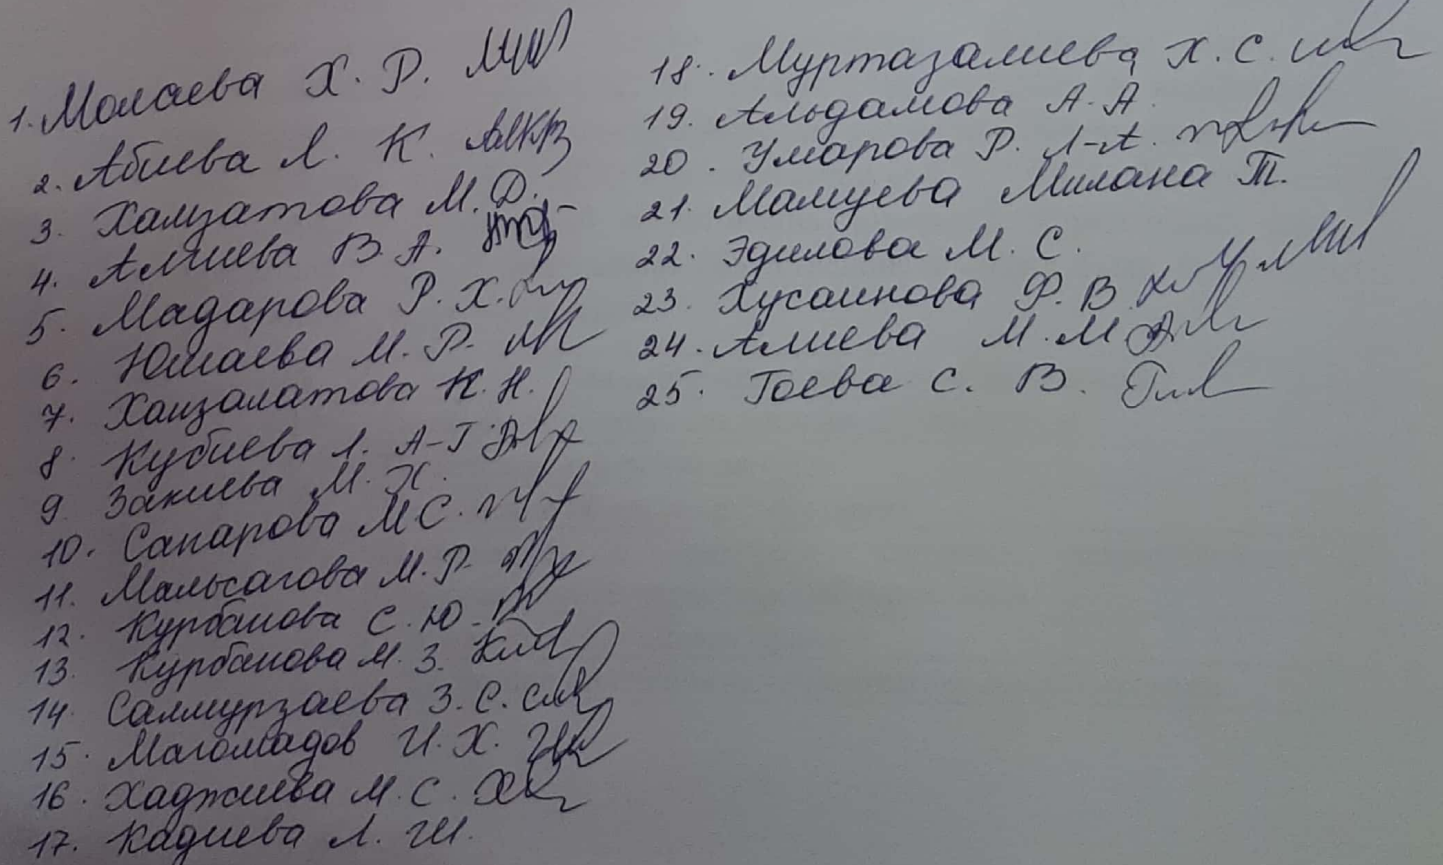 1. Молаева Х. Р.
2. Абиева Л. К.
3. Хамзатова М. Д.
4. Алчиева В. А.
5. Мадарова Р. Х.
6. Юшаева М. Р.
7. Хамзалатова К. Н.
8. Кубиева Л. А-Г.
9. Закиева М. Х.
10. Сапарова М С.
11. Мальсагова М. Р.
12. Курбанова С. Ю.
13. Курбанова М. З.
14. Салмурзаева З. С.
15. Магомадов И. Х.
16. Хаджиева М. С.
17. Кадиева Л. Ш.
18. Муртазалиева Х. С.
19. Альдамова А. А.
20. Умарова Р. Л-А.
21. Мамуева Милана Т.
22. Эдилова М. С.
23. Хусаинова Ф. В
24. Алиева М. М
25. Гоева С. В.